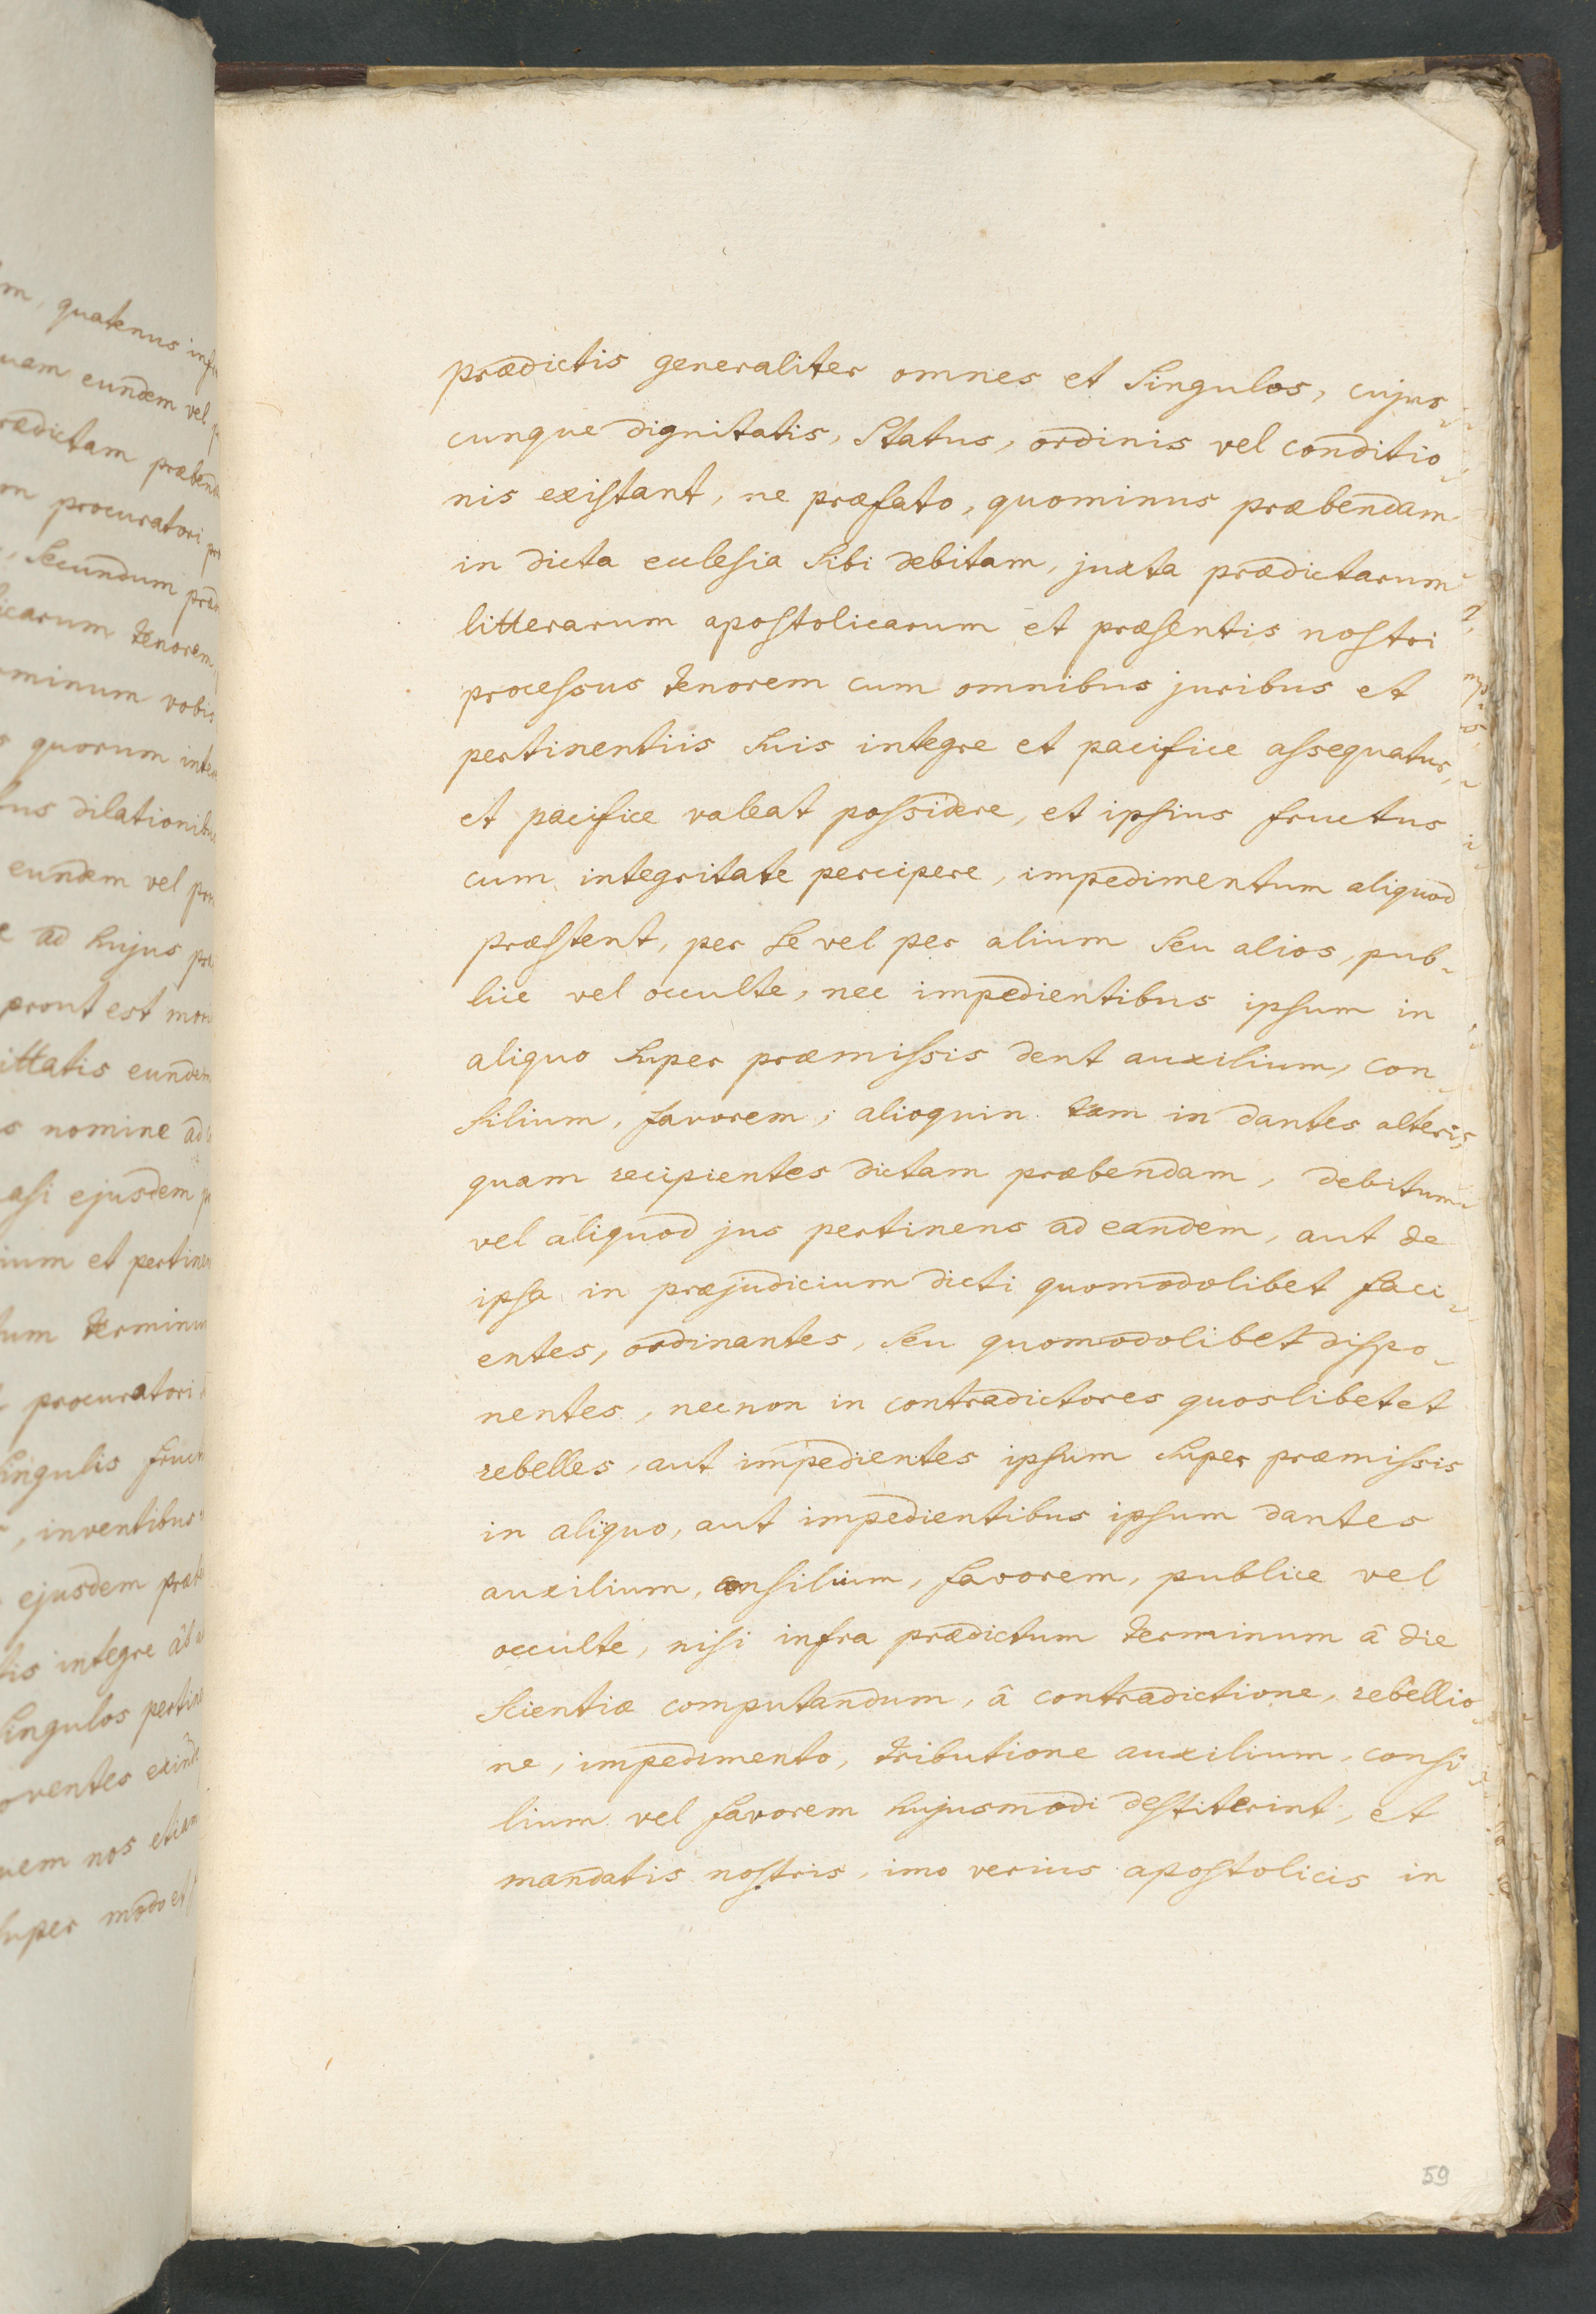 m, quatenus inf
uam eundem vel p
rædictam præbend
m procuratori pr
, secundum præd
icarum tenorem
minum vobis
s quorum inte
us dilationib
eundem vel pro
e ad hujus pr
prout est mor
ittatis eundem
s nomine ad
asi ejusdem p
ium et pertinen
tum terminu
procuratori
singulis fruc
, inventibus
ejusdem præb
tis integre ab
singulos pertin
oventes exinde
uem nos etiam
super modo et
prædictis generaliter omnes et singulos, cujus-
cunque dignitatis, status, ordinis vel conditio-
nis existant, ne præfato, quominus præbendam
in dicta ecclesia sibi debitam, juxta prædictarum
litterarum apostolicarum et præsentis nostri
processus tenorem cum omnibus juribus et
pertinentiis suis integre et pacifice assequatur,
et pacifice valeat possidere, et ipsius fructus
cum integritate percipere, impedimentum aliquod
præstent, per se vel per alium seu alios, pub-
lice vel occulte, nec impedientibus ipsum in
aliquo super præmissis dent auxilium, con-
silium, favorem; alioquin tam in dantes alteris,
quam recipientes dictam præbendam, debitum
vel aliquod jus pertinens ad eandem, aut de
ipsa in præjudicium dicti quomodolibet faci-
entes, ordinantes, seu quomodolibet dispo-
nentes, necnon in contradictores quoslibet et
rebelles, aut impedientes ipsum super præmissis
in aliquo, aut impedientibus ipsum dantes
auxilium, consilium, favorem, publice vel
occulte, nisi infra prædictum terminum â die
scientiæ computandum, â contradictione, rebellio-
ne, impedimento, tributione auxilium, consi-
lium vel favorem hujusmodi destiterint, et
mandatis nostris, imo verius apostolicis in
59